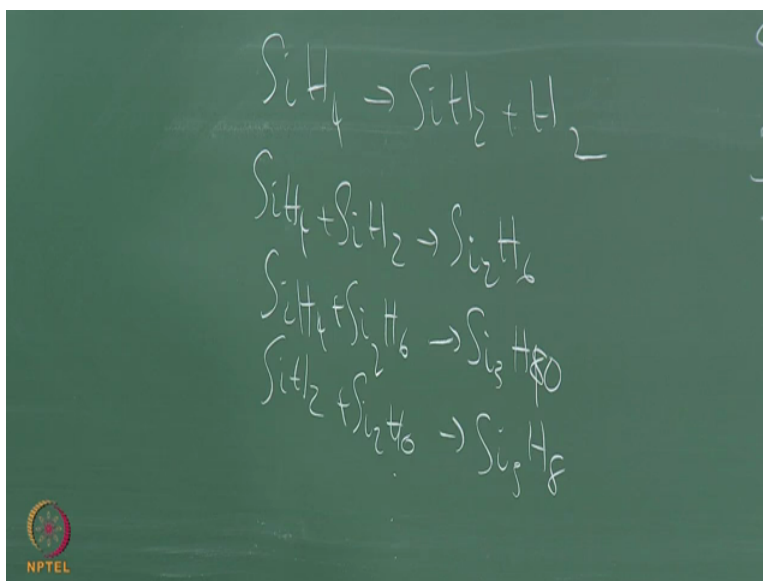 SiH4 → SiH2 + H2
SiH4 + SiH2 → Si2H6
SiH4 + Si2H6 → Si3H10
SiH2 + Si2H6 → Si3H8
NPTEL